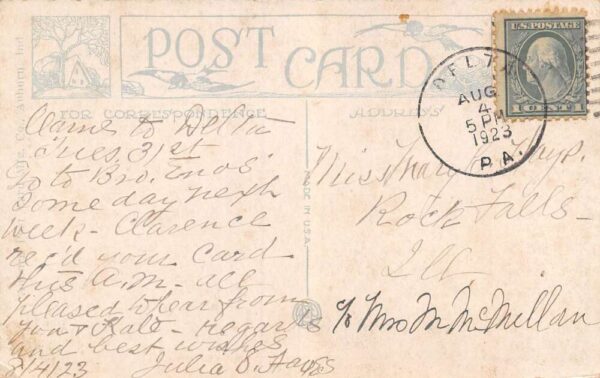 POST CARD
U.S. POSTAGE
1 CENT 1
DELTA
AUG
4
5 PM
1923
PA.
FOR CORRESPONDENCE
ADDRESS
MADE IN U.S.A.
Came to Delta
Tues. 31st
Go to Bro. Enos'
some day next
week - Clarence
rec'd your card
this A.M. - all
pleased to hear from
you & Kate - Regards
and best wishes
8/4/23 Julia O.
Miss Mary
Rock Falls -
Ill
c/o Mrs M McMillan
Auburn, Ind